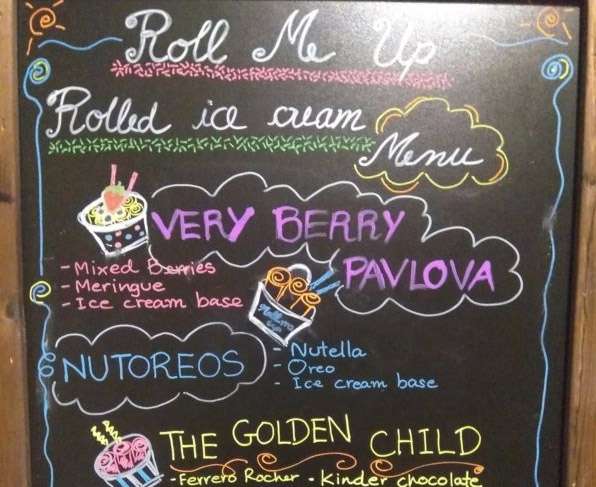 Roll Me Up
Rolled ice cream
Menu
VERY BERRY
PAVLOVA
- Mixed Berries
- Meringue
- Ice cream base
NUTOREOS
- Nutella
- Oreo
- Ice cream base
THE GOLDEN CHILD
- Ferrero Rocher - Kinder chocolate